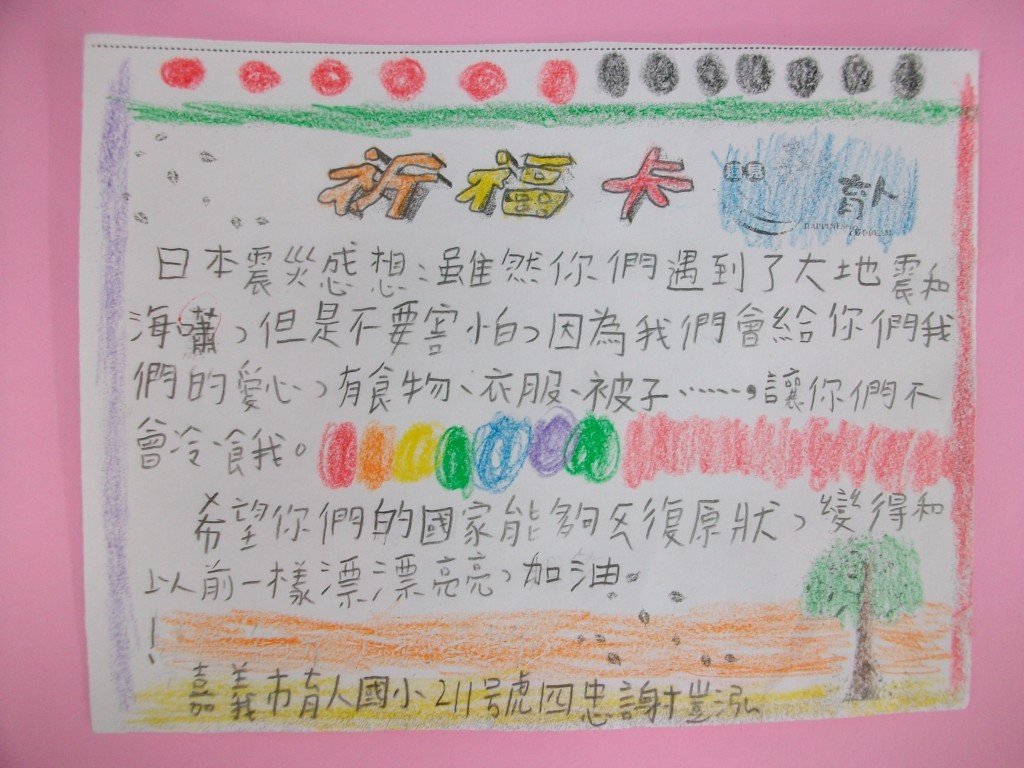 祈福卡
育人
日本震災感想:雖然你們遇到了大地震和
海嘯,但是不要害怕,因為我們會給你們我
們的愛心,有食物、衣服、被子……,讓你們不
會冷、餓。
希望你們的國家能夠恢復原狀,變得和
以前一樣漂漂亮亮,加油。
!
嘉義市育人國小211號虎四忠謝豈泓